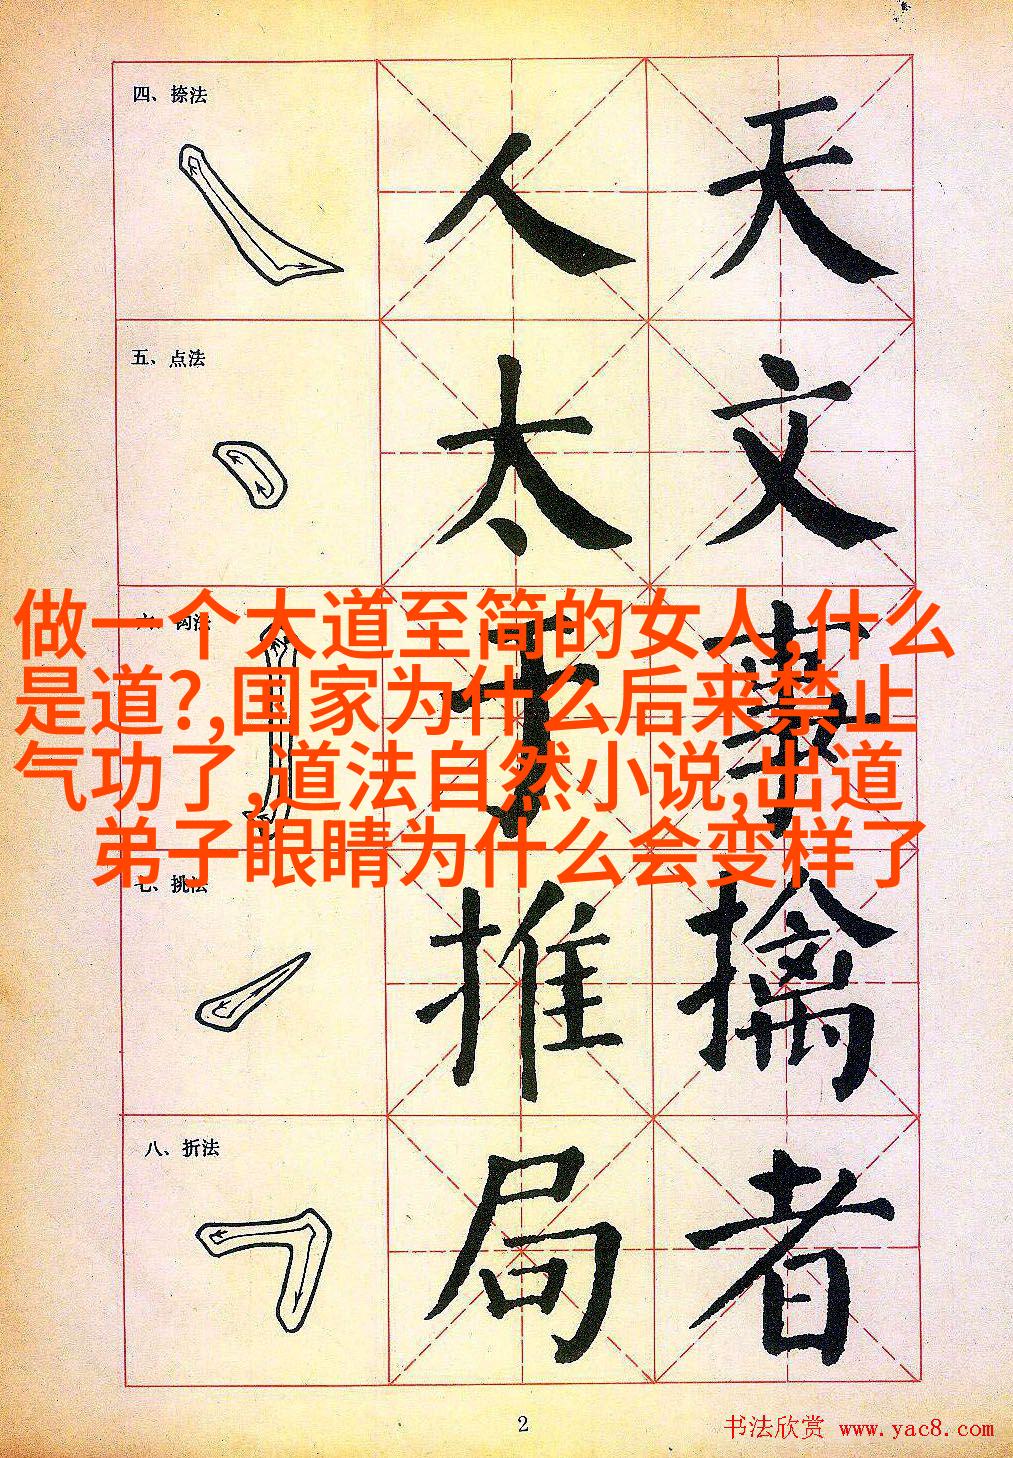 四、捺法
人 天
五、点法
太 文
做一个大道至简的女人,什么
是道?,国家为什么后来禁止
气功了,道法自然小说,出道
弟子眼睛为什么会变样了
七、挑法
推 擒
八、折法
局 者
2
书法欣赏 www.yac8.com